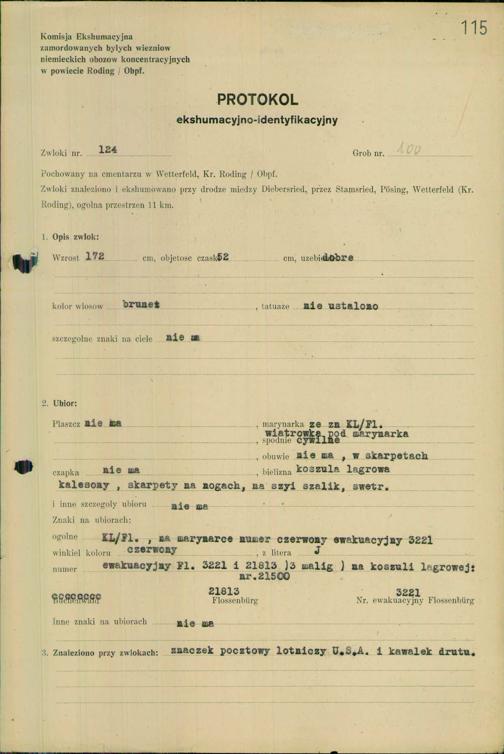 115
Komisja Ekshumacyjna
zamordowanych byłych wiezniow
niemieckich obozow koncentracyjnych
w powiecie Roding / Obpf.
PROTOKOL
ekshumacyjno-identyfikacyjny
Zwloki nr. 124 Grob nr. 100
Pochowany na cmentarzu w Wetterfeld, Kr. Roding / Obpf.
Zwloki znaleziono i ekshumowano przy drodze miedzy Diebersried, przez Stamsried, Pösing, Wetterfeld (Kr.
Roding), ogolna przestrzen 11 km.
1. Opis zwlok:
Wzrost 172 cm, objetosc czaski 52 cm, uzebienie dobre
kolor wlosow brunet , tatuaze nie ustalono
szczegolne znaki na ciele nie m
2. Ubior:
Plaszcz nie ma , marynarka ze zn KL/Fl.
wiatrowka pod marynarka
, spodnie cywilne
, obuwie nie ma , w skarpetach
czapka nie ma , bielizna koszula lagrowa
kalesony , skarpety na nogach, na szyi szalik, swetr.
i inne szczegoly ubioru nie ma
Znaki na ubiorach:
ogolne KL/Fl. , na marynarce numer czerwony ewakuacyjny 3221
winkiel koloru czerwony , z litera J
numer ewakuacyjny Fl. 3221 i 21813 )3 malig ) na koszuli lagrowej:
nr.21500
21813 3221
Buchenwald Flossenbürg Nr. ewakuacyjny Flossenbürg
Inne znaki na ubiorach nie ma
3. Znaleziono przy zwlokach: znaczek pocztowy lotniczy U.S.A. i kawalek drutu.